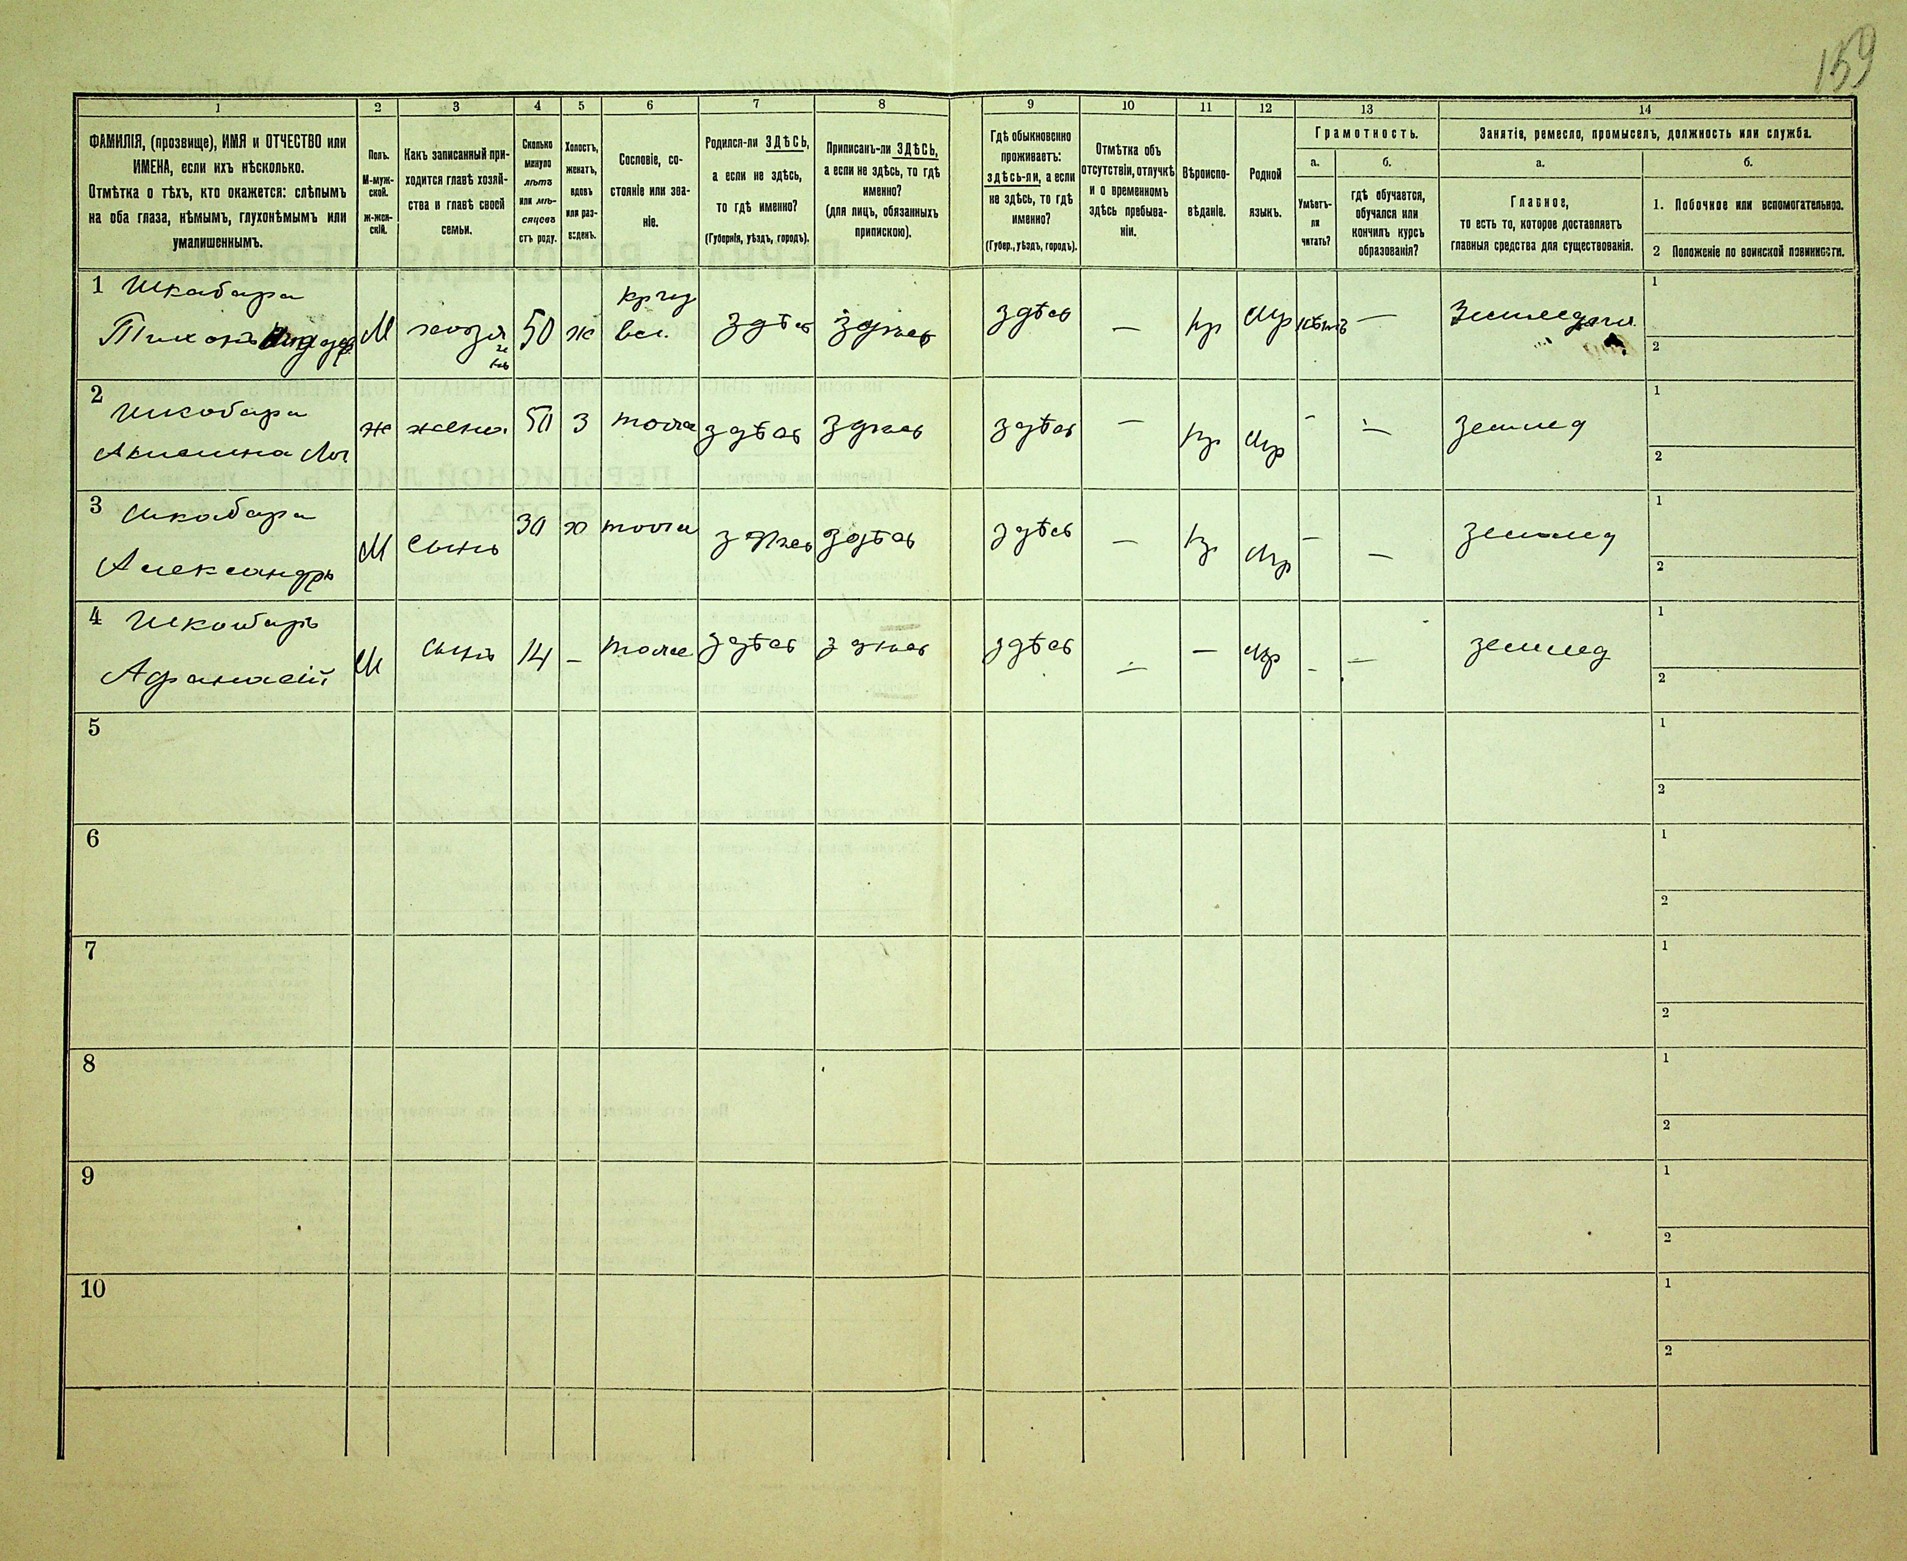 159
1
2
3
4
5
6
7
8
9
10
11
12
13
14
ФАМИЛІЯ, (прозвище), ИМЯ и ОТЧЕСТВО или
ИМЕНА, если ихъ нѣсколько.
Отмѣтка о тѣхъ, кто окажется: слѣпымъ
на оба глаза, нѣмымъ, глухонѣмымъ или
умалишеннымъ.
Полъ.
М-муж-
ской.
ж-жен-
скій.
Какъ записанный при-
ходится главѣ хозяй-
ства и главѣ своей
семьи.
Сколько
минуло
лѣтъ
или мѣ-
сяцевъ
отъ роду.
Холостъ,
женатъ,
вдовъ
или раз-
веденъ.
Сословіе, со-
стояніе или зва-
ніе.
Родился-ли ЗДѢСЬ,
а если не здѣсь,
то гдѣ именно?
(Губернія, уѣздъ, городъ).
Приписанъ-ли ЗДѢСЬ,
а если не здѣсь, то гдѣ
именно?
(для лицъ, обязанныхъ
припискою).
Гдѣ обыкновенно
проживаетъ:
здѣсь-ли, а если
не здѣсь, то гдѣ
именно?
(Губер., уѣздъ, городъ).
Отмѣтка объ
отсутствіи, отлучкѣ
и о временномъ
здѣсь пребыва-
ніи.
Вѣроиспо-
вѣданіе.
Родной
языкъ.
Грамотность.
а.
б.
Умѣетъ-
ли
читать?
гдѣ обучается,
обучался или
кончилъ курсъ
образованія?
Занятія, ремесло, промыселъ, должность или служба.
а.
б.
Главное,
то есть то, которое доставляетъ
главныя средства для существованія.
1. Побочное или вспомогательное.
2 Положеніе по воинской повинности.
1 Шкабара
Тихонъ М 50 ж здѣсь здѣсь здѣсь — — 1
2
2 Шкобара
ж жена 50 З тоже здѣсь здѣсь здѣсь — - — землед 1
2
3 Шкобара
Александръ М сынъ 30 х тоже здѣсь здѣсь здѣсь — - — землед 1
2
4
Афанасій М сынъ 14 - тоже здѣсь здѣсь здѣсь — — - — землед 1
2
5 1
2
6 1
2
7 1
2
8 1
2
9 1
2
10 1
2